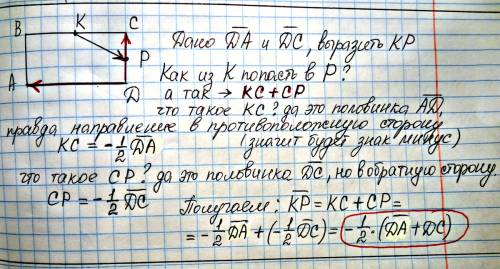 B K C
P
A D
Дано D̅A̅ и D̅C̅, выразить KP
Как из K попасть в P?
а так → KC + CP
что такое KC? да это половинка A̅D̅,
правда направление в противоположную сторону
KC = -1/2 D̅A̅ (значит будет знак минус)
что такое CP? да это половинка D̅C̅, но в обратную сторону.
CP = -1/2 D̅C̅
Получаем: K̅P̅ = KC + CP =
= -1/2 D̅A̅ + (-1/2 D̅C̅) = -1/2 · (D̅A̅ + D̅C̅)